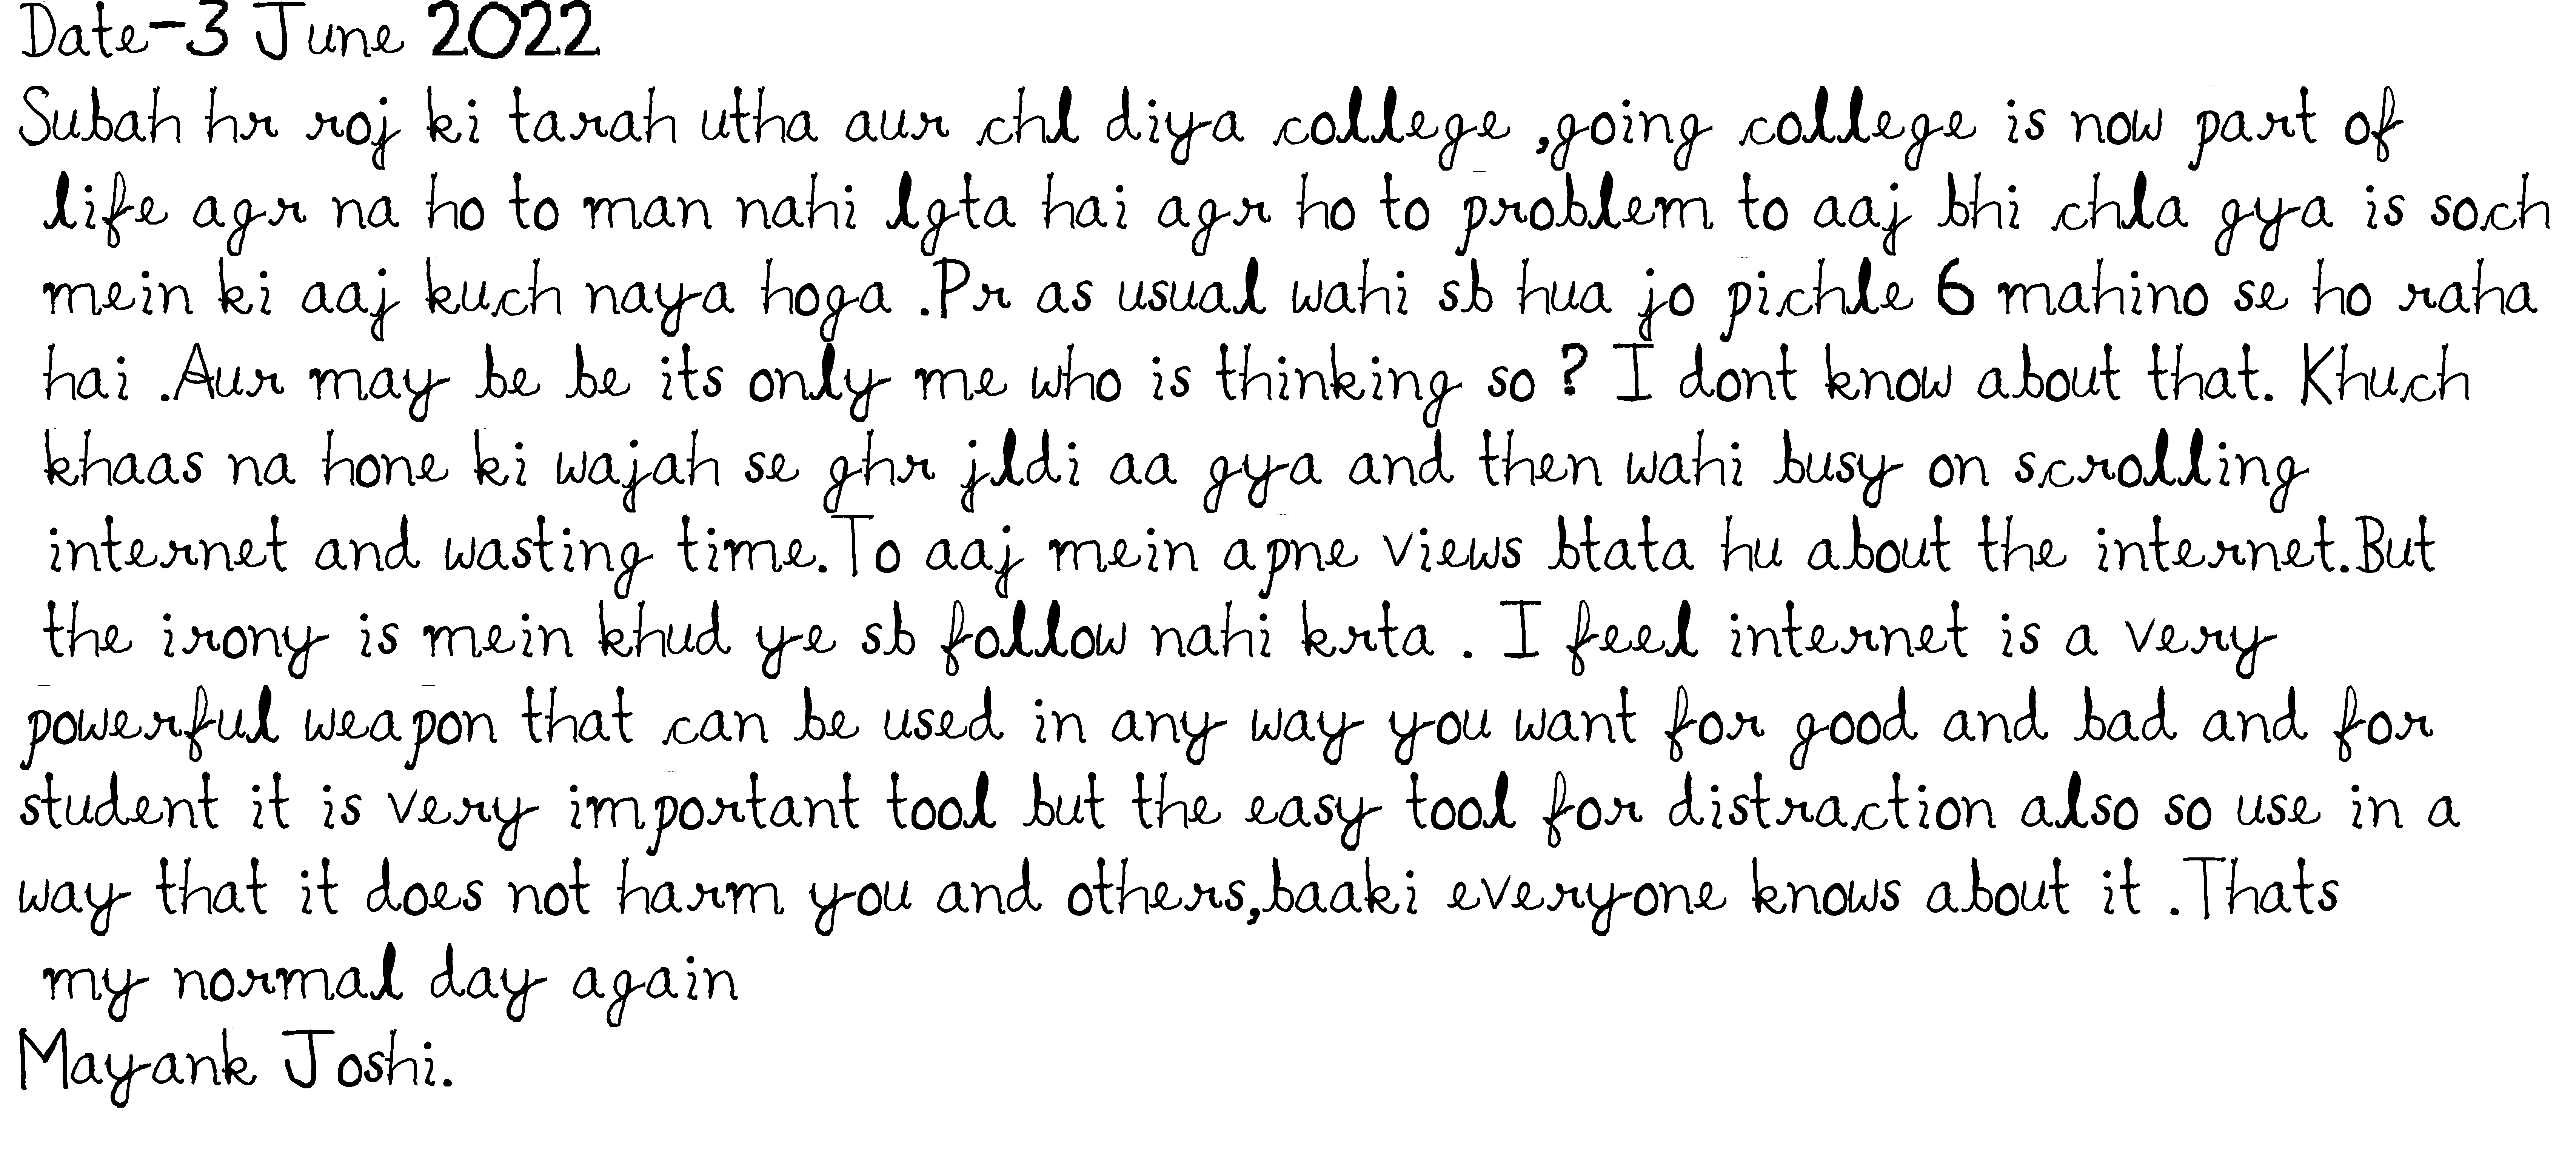 Date-3 June 2022
Subah hr roj ki tarah utha aur chl diya college ,going college is now part of
life agr na ho to man nahi lgta hai agr ho to problem to aaj bhi chla gya is soch
mein ki aaj kuch naya hoga .Pr as usual wahi sb hua jo pichle 6 mahino se ho raha
hai .Aur may be be its only me who is thinking so ? I dont know about that. Khuch
khaas na hone ki wajah se ghr jldi aa gya and then wahi busy on scrolling
internet and wasting time.To aaj mein apne views btata hu about the internet.But
the irony is mein khud ye sb follow nahi krta . I feel internet is a very
powerful weapon that can be used in any way you want for good and bad and for
student it is very important tool but the easy tool for distraction also so use in a
way that it does not harm you and others,baaki everyone knows about it .Thats
my normal day again
Mayank Joshi.